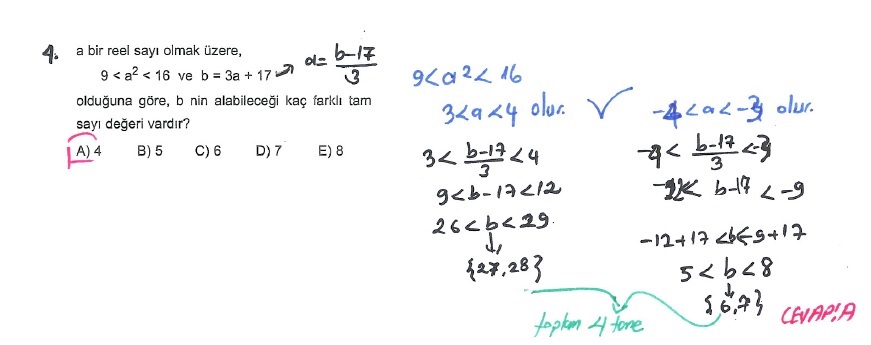 4. a bir reel sayı olmak üzere,
9 < a² < 16 ve b = 3a + 17 → a = (b-17)/3
olduğuna göre, b nin alabileceği kaç farklı tam
sayı değeri vardır?
A) 4 B) 5 C) 6 D) 7 E) 8
9 < a² < 16
3 < a < 4 olur. ✓
3 < (b-17)/3 < 4
9 < b-17 < 12
26 < b < 29
↓
{27,28}
-4 < a < -3 olur.
-4 < (b-17)/3 < -3
-12 < b-17 < -9
-12+17 < b < -9+17
5 < b < 8
↓
{6,7}
toplam 4 tane
CEVAP: A